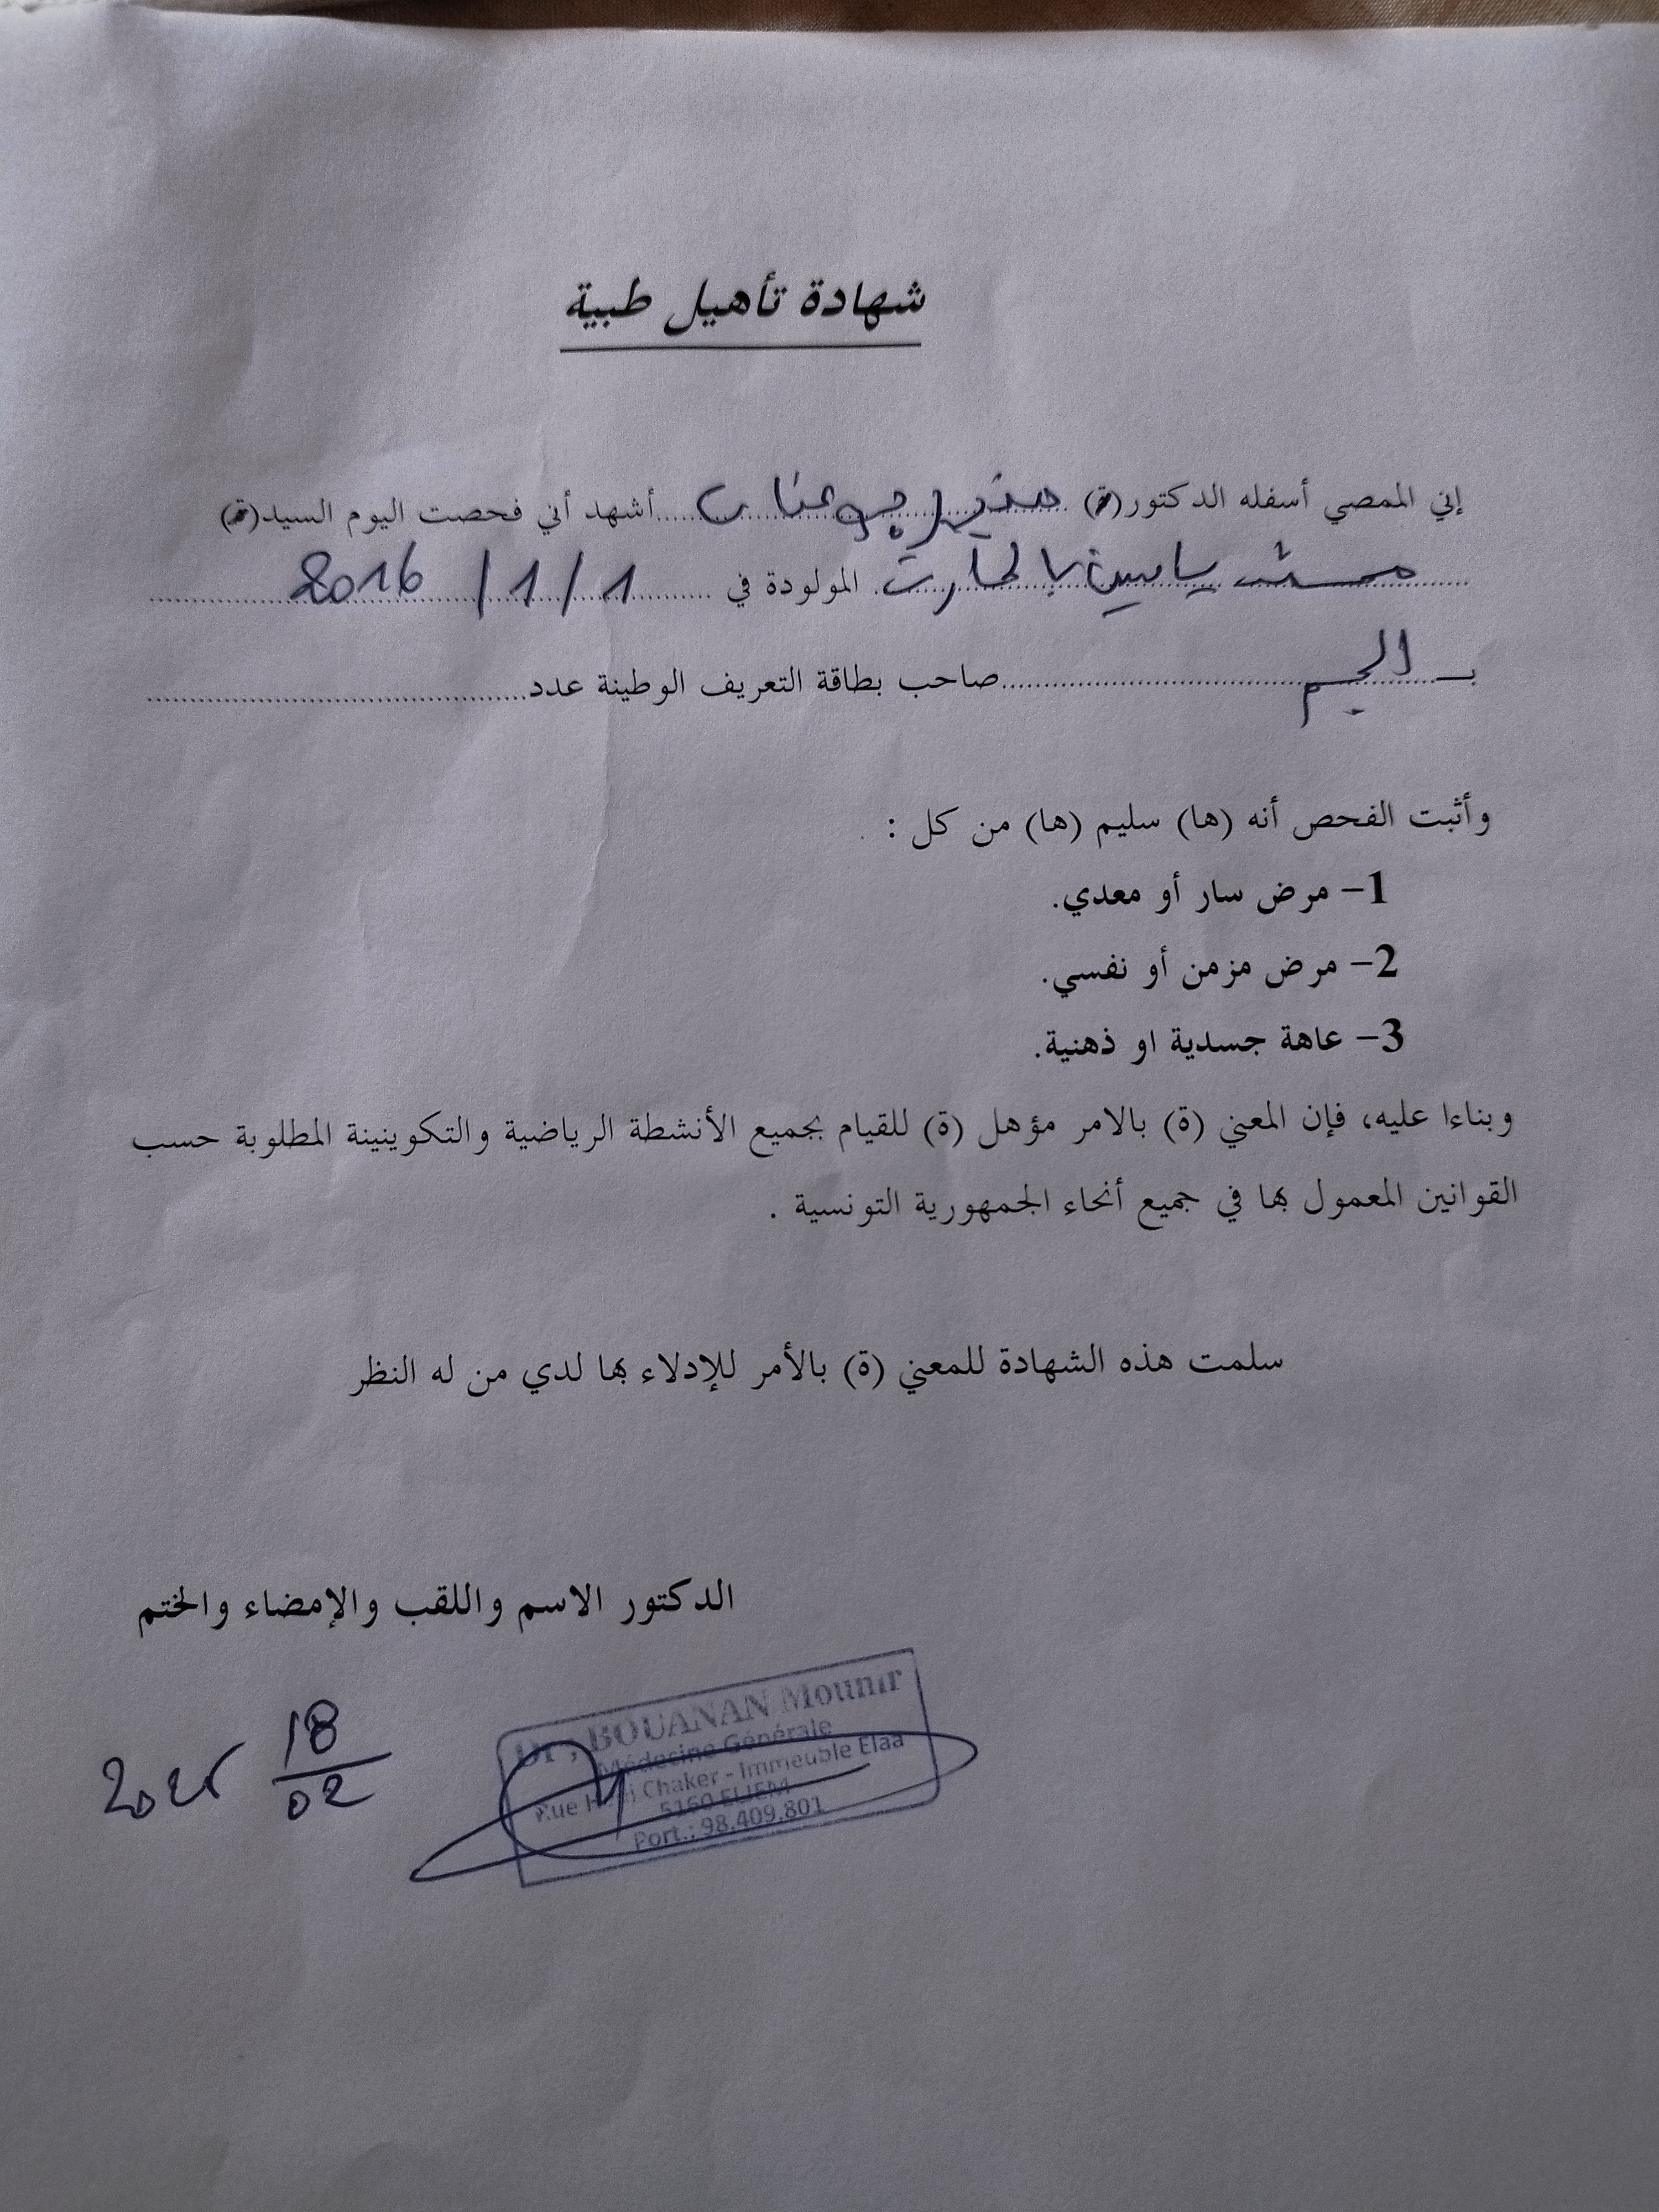 شهادة تأهيل طبية
إني الممصي أسفله الدكتور(ة) منير بوعنان أشهد أني فحصت اليوم السيد(ة)
ياسين بالحارث المولودة في 1/1/2016
بـ الجم صاحب بطاقة التعريف الوطينة عدد
وأثبت الفحص أنه (ها) سليم (ها) من كل :
1– مرض سار أو معدي.
2– مرض مزمن أو نفسي.
3– عاهة جسدية او ذهنية.
وبناءا عليه، فإن المعني (ة) بالامر مؤهل (ة) للقيام بجميع الأنشطة الرياضية والتكوينينة المطلوبة حسب
القوانين المعمول بها في جميع أنحاء الجمهورية التونسية .
سلمت هذه الشهادة للمعني (ة) بالأمر للإدلاء بها لدي من له النظر
الدكتور الاسم واللقب والإمضاء والختم
18
02
Dr. BOUANAN Mounir
Médecine Générale
Rue Hedi Chaker - Immeuble Elaa
5160 ELJEM
Port.: 98.409.801